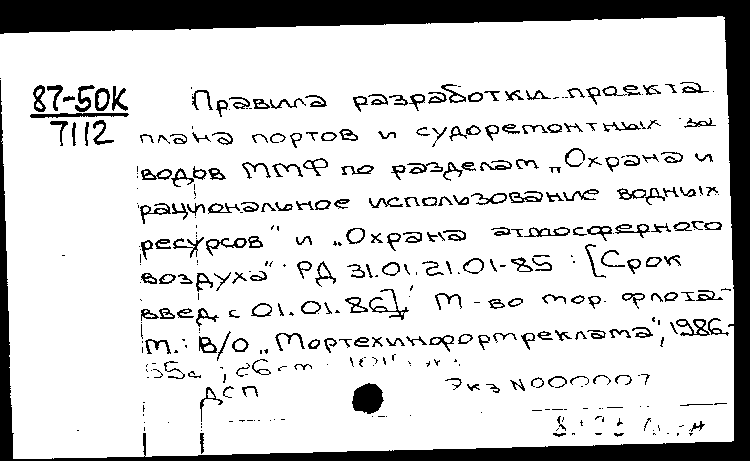 87-50К
7112
Правила разработки проекта
плана портов и судоремонтных за
водов ММФ по разделам „Охрана и
рациональное использование водных
ресурсов" и „Охрана атмосферного
воздуха" РД 31.01.21.01-85 : [Срок
введ. с 01.01.86] М-во мор. флота.-
М.: В/О „Мортехинформреклама", 1986.-
55с
ДСП
Экз N000007